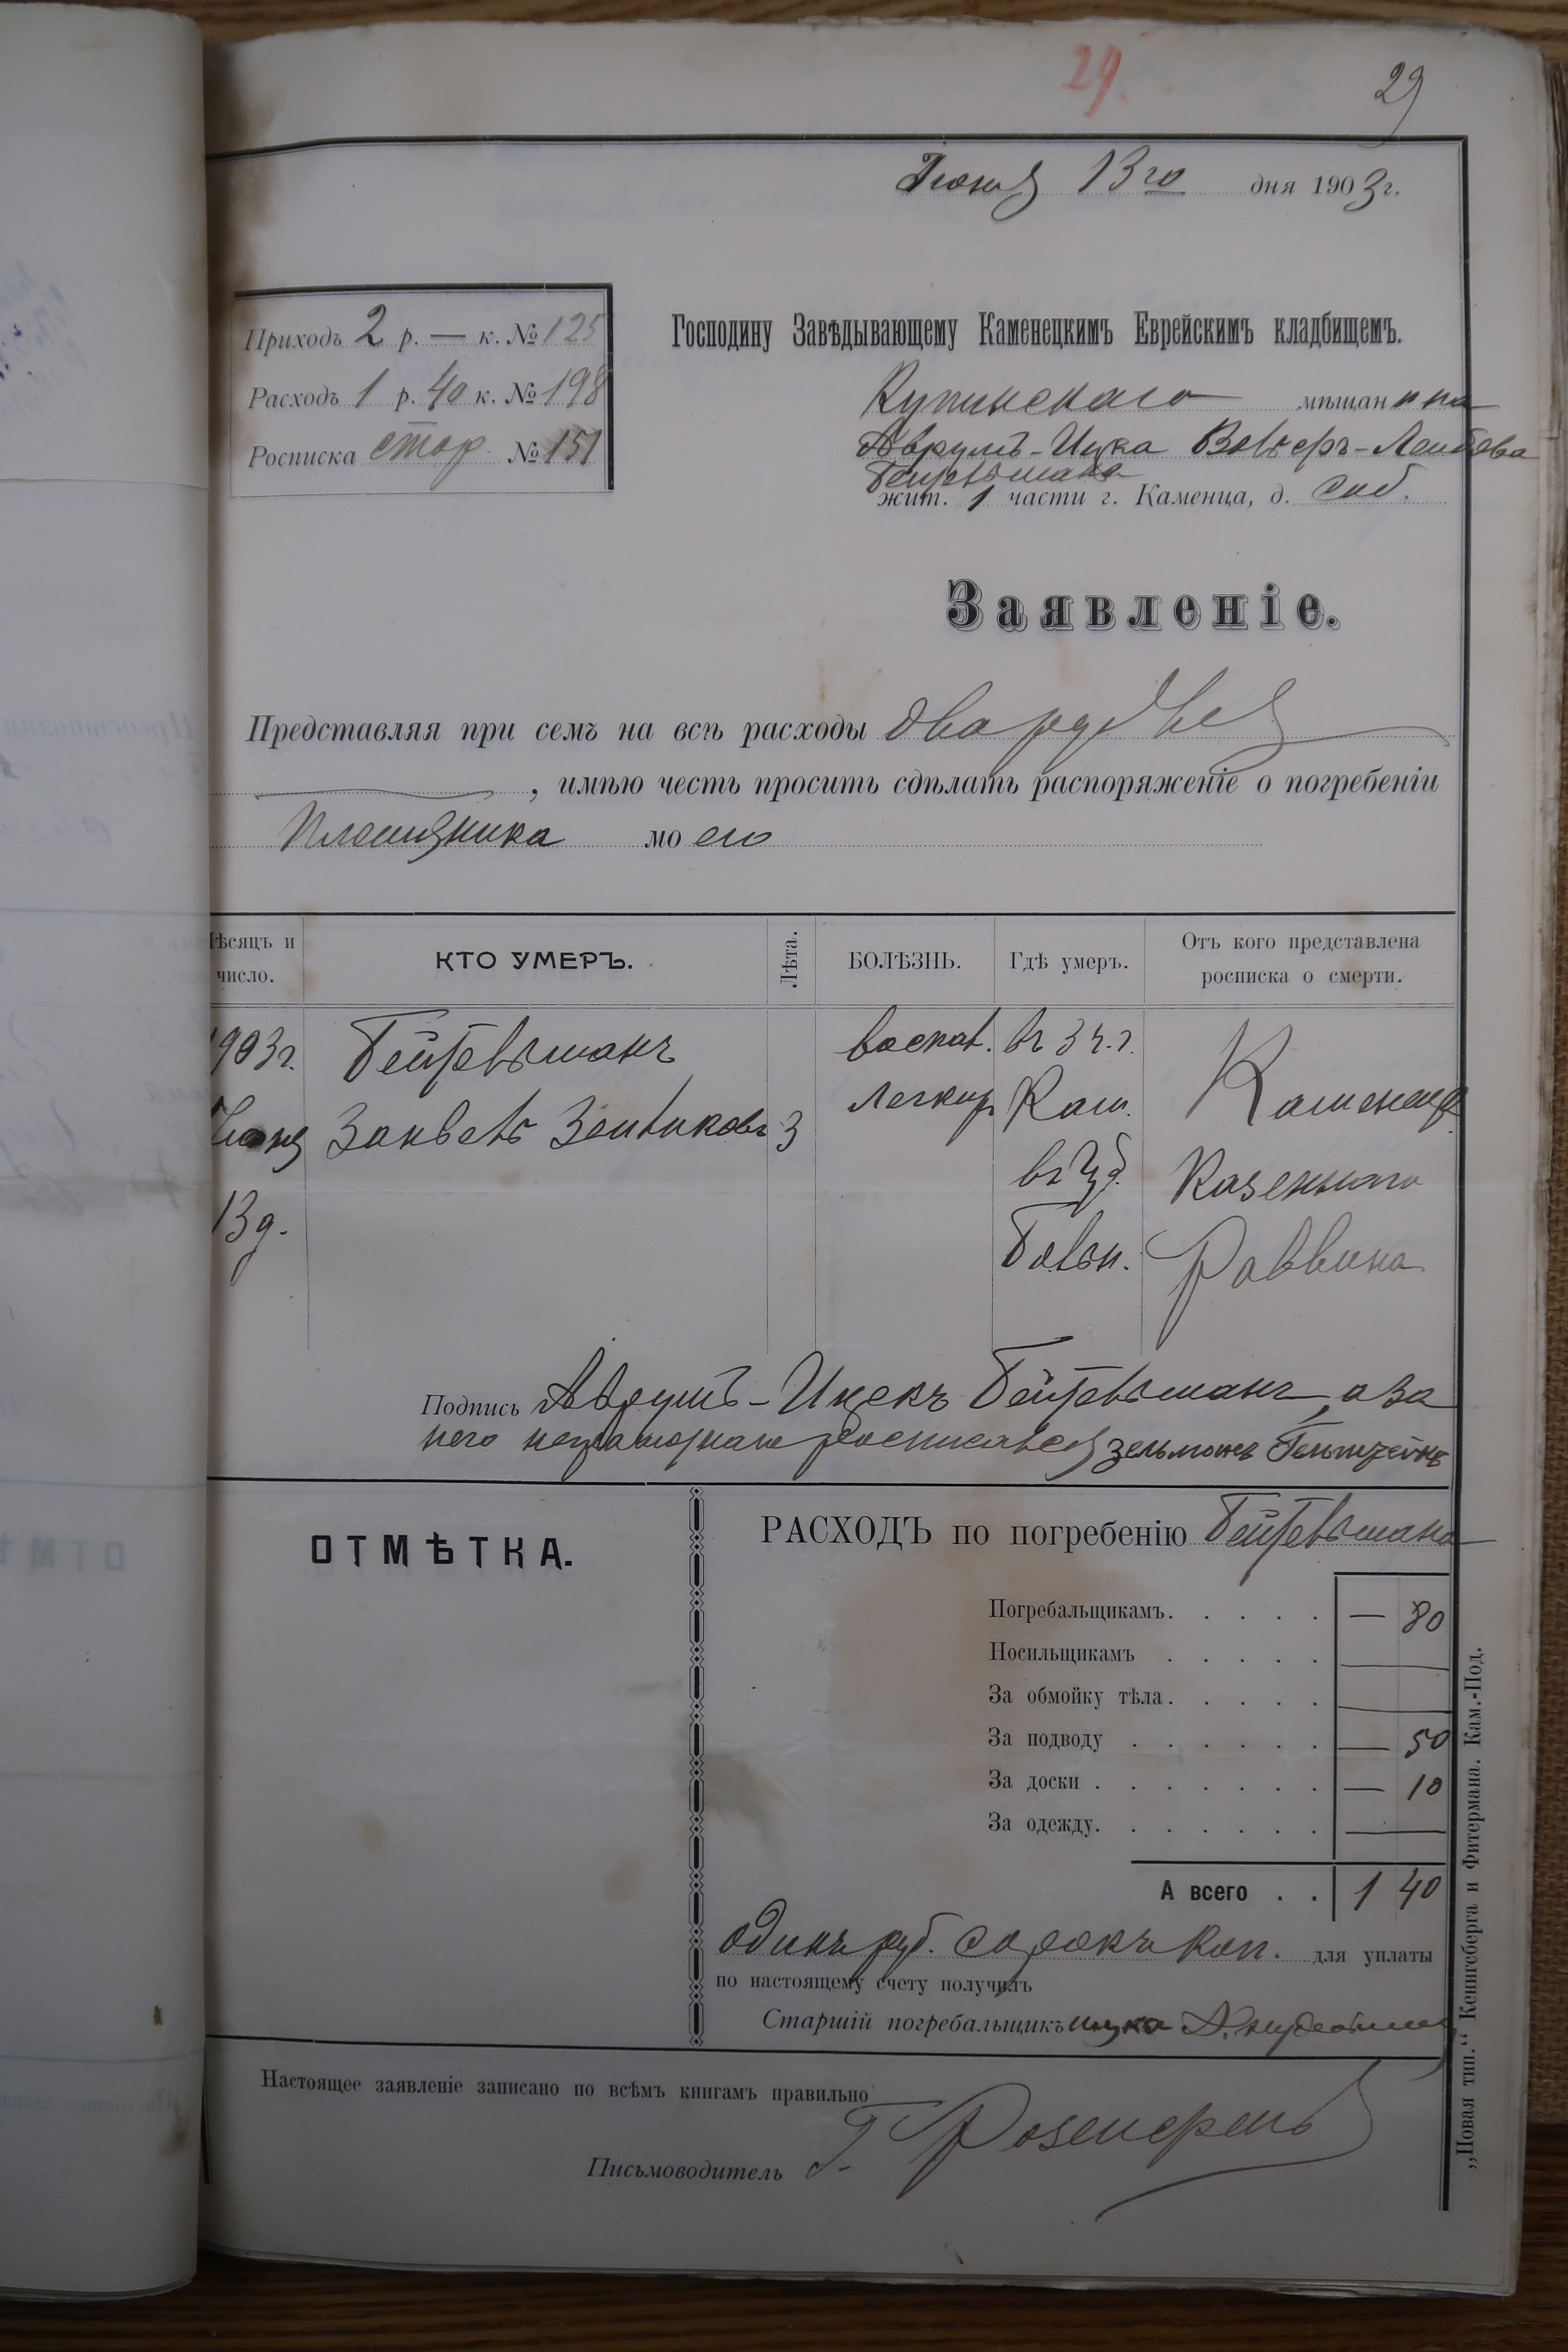 29.
29
Іюня 13го дня 1903 г.
Приходъ 2 р. — к. № 125
Расходъ 1 р. 40 к. № 198
Росписка стор. № 151
Господину Завѣдывающему Каменецкимъ Еврейскимъ кладбищемъ.
Купинскаго мѣщанина
Аврумъ-Ицка Вольфъ-Лейбова
Гейфельмана
жит. 1 части г. Каменца, д. соб.
Заявленіе.
Представляя при семъ на всѣ расходы два рубля
, имѣю честь просить сдѣлать распоряженіе о погребеніи
племянника моего
Мѣсяцъ и число.
КТО УМЕРЪ.
Лѣта.
БОЛѢЗНЬ.
Гдѣ умеръ.
Отъ кого представлена росписка о смерти.
1903 г. Іюня 13 д.
3
воспал. легких
въ 3 ч. г. Кам. въ Губ. Больн.
Каменецк. Казеннаго Раввина
Подпись Аврумъ-Ицекъ , а за
него неграмотнаго росписался Зельманъ
ОТМѢТКА.
РАСХОДЪ по погребенію
Погребальщикамъ. — 80
Носильщикамъ —
За обмойку тѣла. —
За подводу — 50
За доски — 10
За одежду. —
А всего 1 40
одинъ руб. сорокъ коп. для уплаты
по настоящему счету получилъ
Старшій погребальщикъ ицка
Настоящее заявленіе записано по всѣмъ книгамъ правильно
Письмоводитель
„Новая тип.“ Кенигсберга и Фитермана. Кам.-Под.